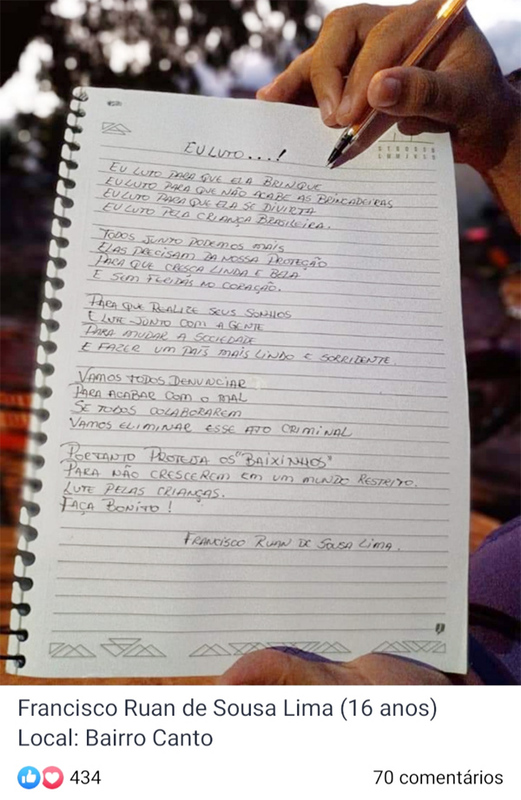 EU LUTO....!
EU LUTO PARA QUE ELA BRINQUE
EU LUTO PARA QUE NÃO ACABE AS BRINCADEIRAS
EU LUTO PARA QUE ELA SE DIVIRTA
EU LUTO PELA CRIANÇA BRASILEIRA.
TODOS JUNTO PODEMOS MAIS
ELAS PRECISAM DA NOSSA PROTEÇÃO
PARA QUE CRESÇA LINDA E BELA
E SEM FERIDAS NO CORAÇÃO.
PARA QUE REALIZE SEUS SONHOS
E LUTE JUNTO COM A GENTE
PARA AJUDAR A SOCIEDADE
E FAZER UM PAÍS MAIS LINDO E SORRIDENTE.
VAMOS TODOS DENUNCIAR
PARA ACABAR COM O MAL
SE TODOS COLABORAREM
VAMOS ELIMINAR ESSE ATO CRIMINAL
PORTANTO PROTEJA OS "BAIXINHOS"
PARA NÃO CRESCEREM EM UM MUNDO RESTRITO.
LUTE PELAS CRIANÇAS.
FAÇA BONITO!
FRANCISCO RUAN DE SOUSA LIMA.
Francisco Ruan de Sousa Lima (16 anos)
Local: Bairro Canto
434
70 comentários